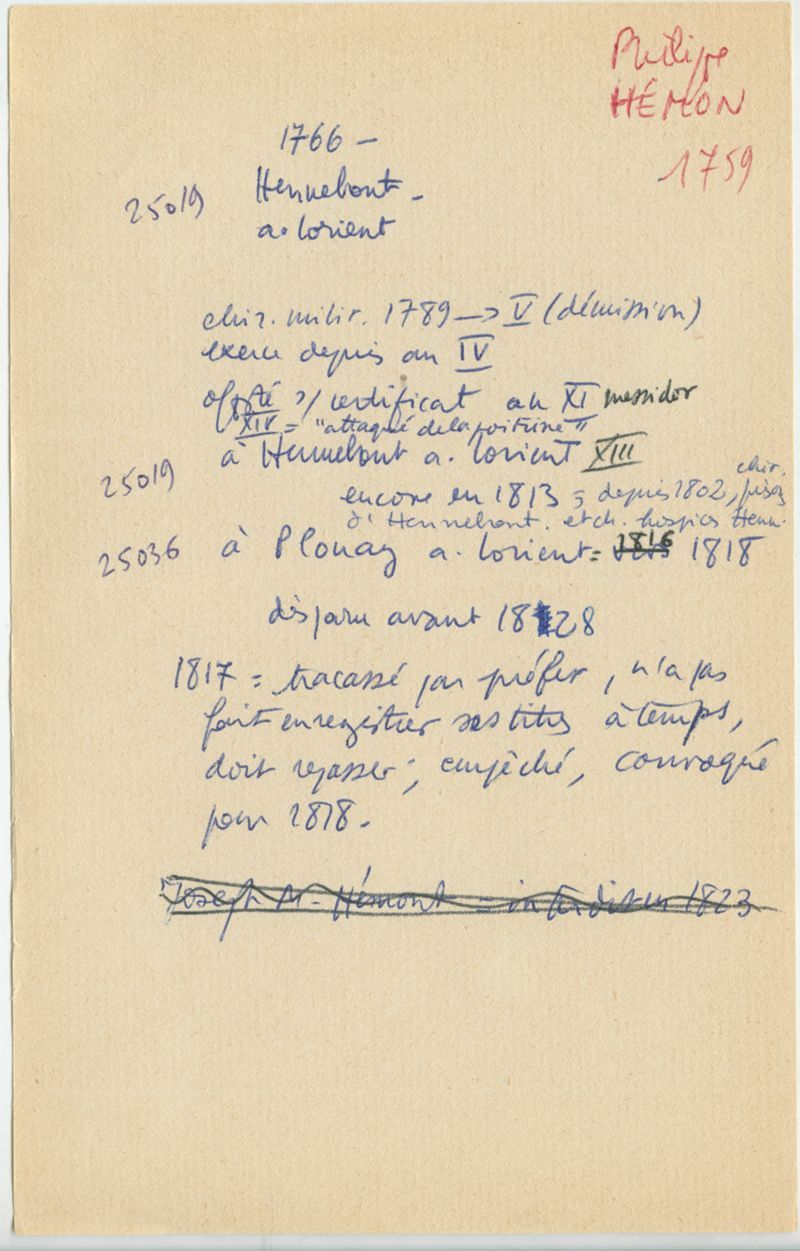 Philippe
HÉMON
1759
1766 –
25019 Hennebont –
a. Lorient
chir. milir. 1789 → V (démission)
exerce depuis an IV
off. té s/ certificat an XI messidor
XIV = "attaqué de la poitrine"
à Hennebont a. Lorient XIII
25019
encore en 1813 ; depuis 1802, chir. prison
d'Hennebont. et ch. hospices Henn.
25036 à Plouay a. Lorient = 1816 1818
disparu avant 1828
1817 = tracassé par préfet, n'a pas
fait enregistrer ses titres à temps,
doit repasser ; empêché, convoqué
pour 1818.
Joseph M. Hémont = interdit en 1823